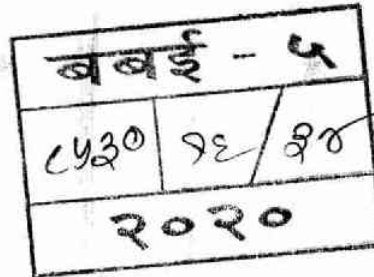 बबई - ५
८५३० १६/३४
२०२०